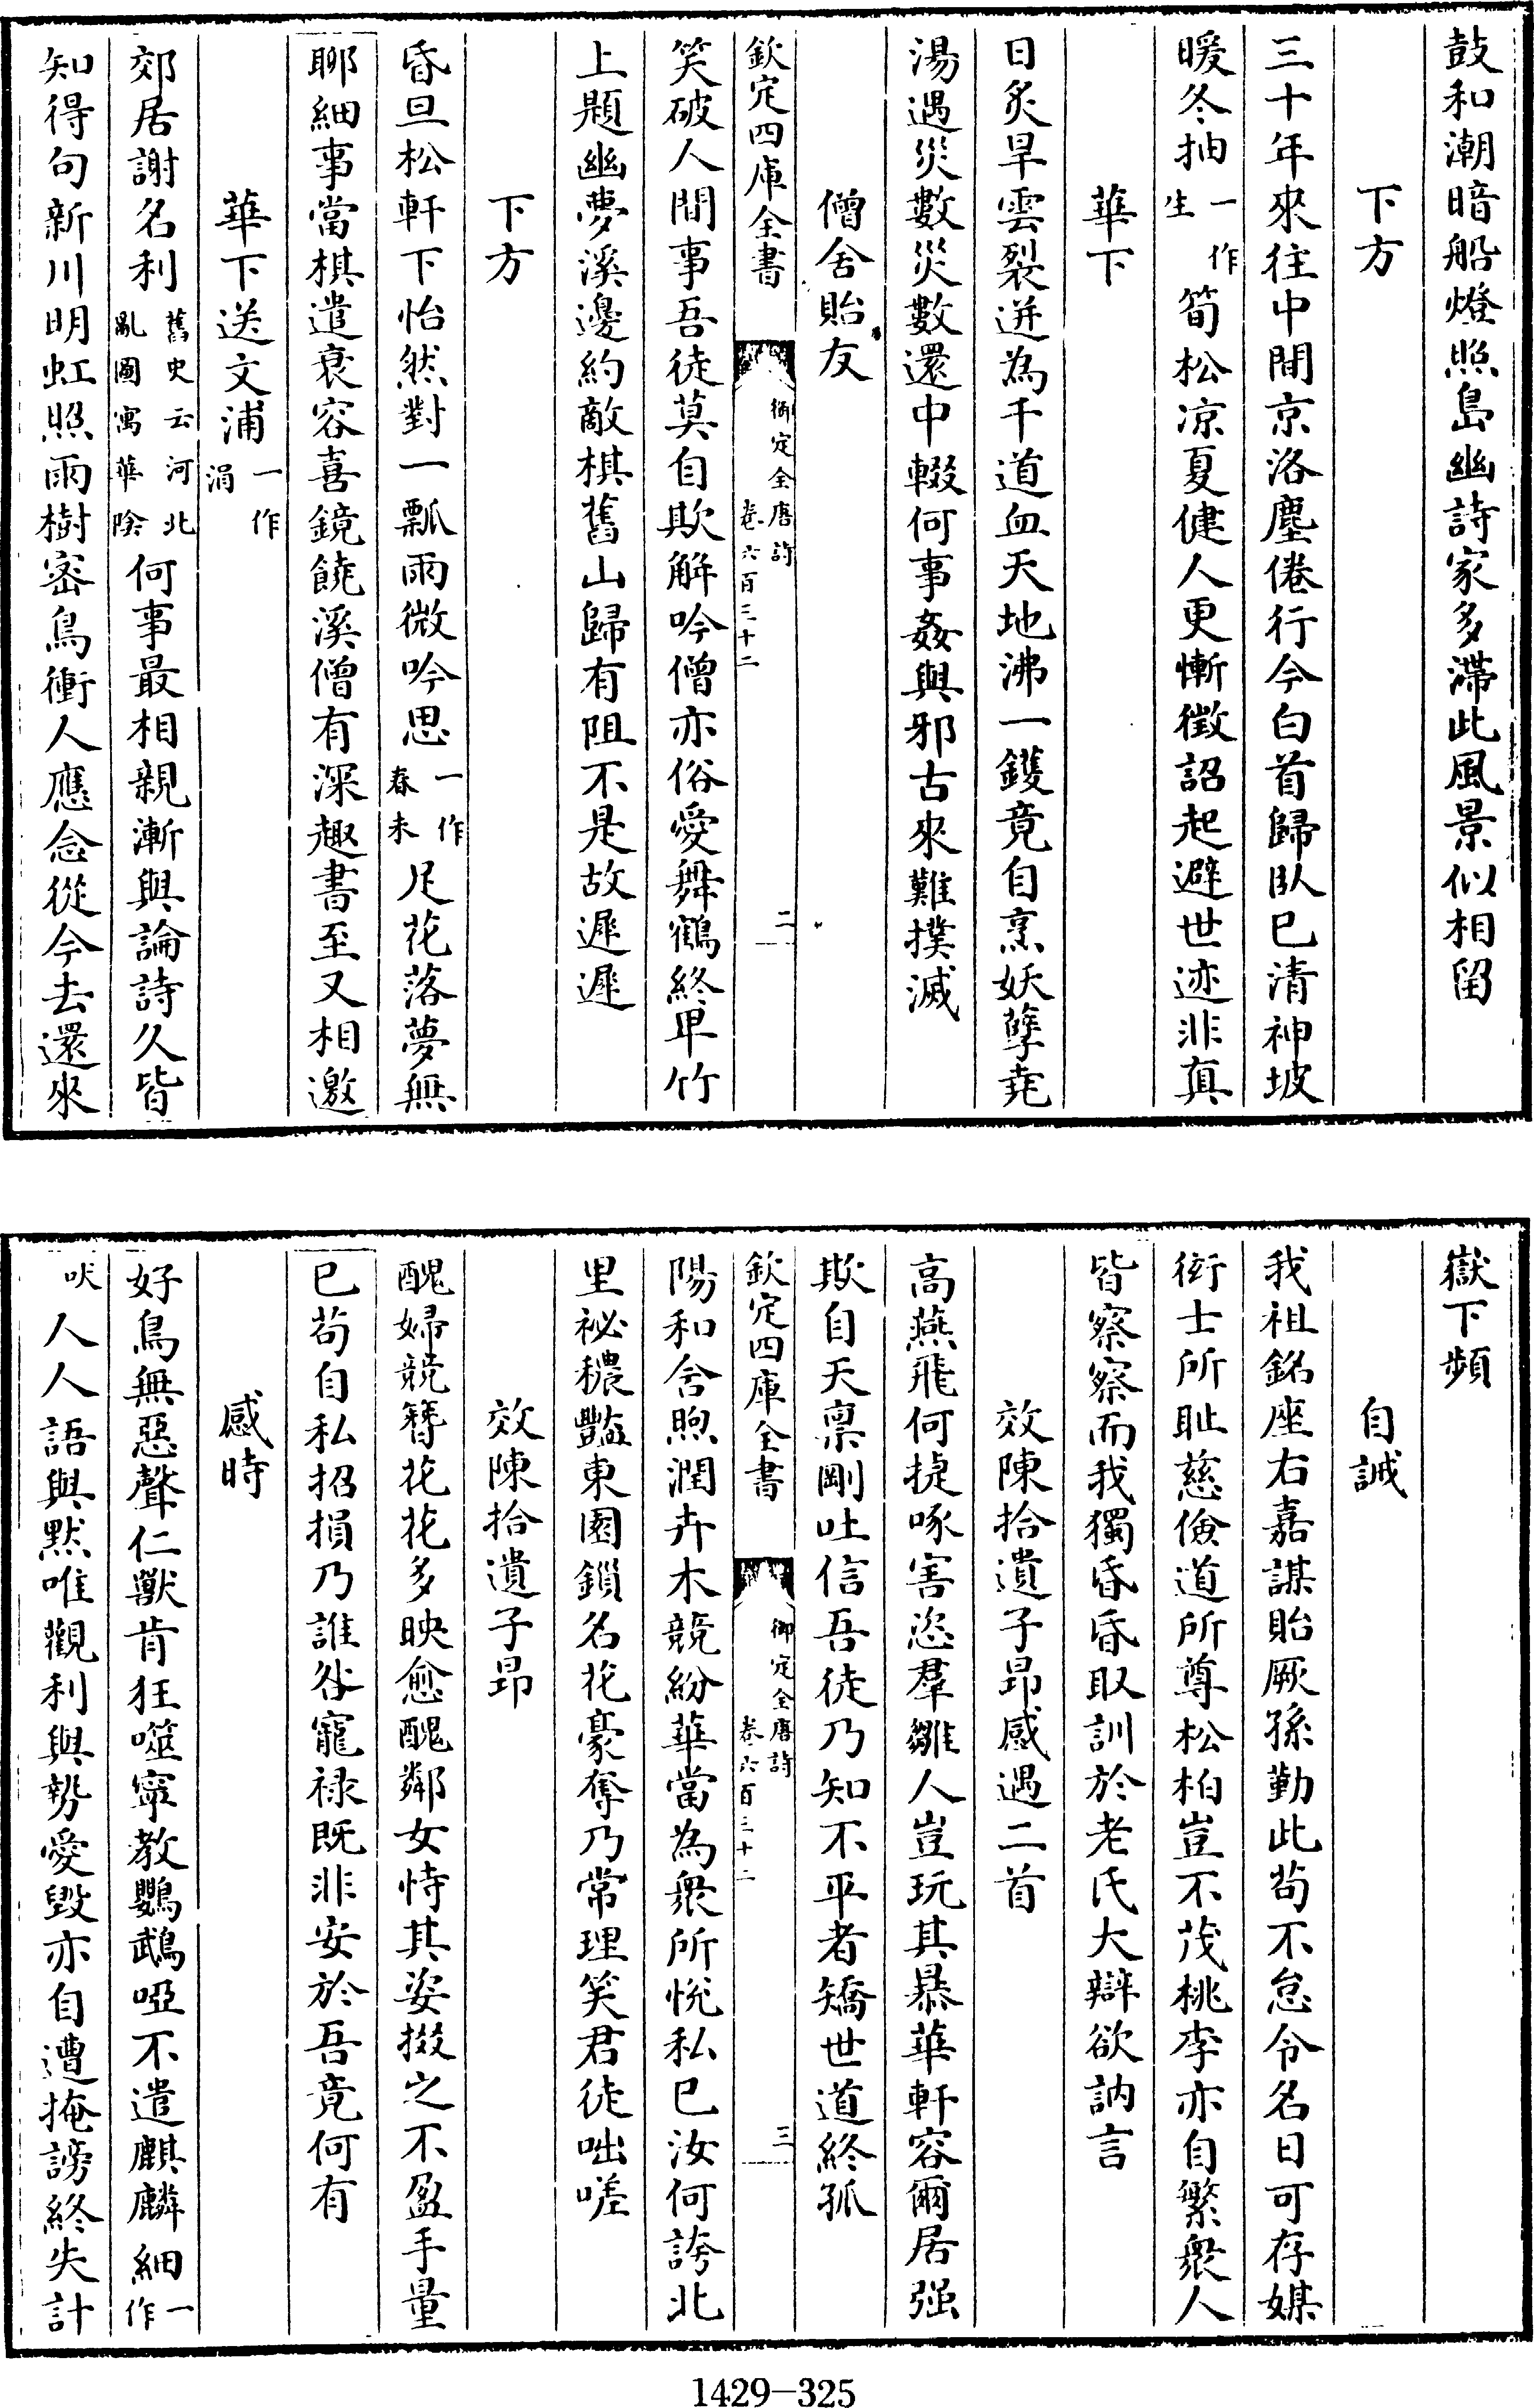 鼓和潮暗船燈照島幽詩家多滯此風景似相留
下方
三十年來往中間京洛塵倦行今白首歸臥已清神坡
暖冬抽一作生筍松凉夏健人更慚徵詔起避世迹非真
華下
日炙旱雲裂迸為千道血天地沸一鑊竟自烹妖孽堯
湯遇災數災數還中輟何事姦與邪古來難撲滅
僧舍貽友
欽定四庫全書
御定全唐詩
卷六百三十二
二
笑破人間事吾徒莫自欺解吟僧亦俗愛舞鶴終卑竹
上題幽夢溪邊約敵棋舊山歸有阻不是故遲遲
下方
昏旦松軒下怡然對一瓢雨微吟思一作春未足花落夢無
聊細事當棋遣衰容喜鏡饒溪僧有深趣書至又相邀
華下送文浦一作涓
郊居謝名利舊史云河北亂圖寓華陰何事最相親漸與論詩久皆
知得句新川明虹照雨樹密鳥衝人應念從今去還來
嶽下頻
自誡
我祖銘座右嘉謀貽厥孫勤此苟不怠令名日可存媒
衒士所耻慈儉道所尊松柏豈不茂桃李亦自繁衆人
皆察察而我獨昏昏取訓於老氏大辯欲訥言
效陳拾遺子昂感遇二首
高燕飛何捷啄害恣羣雛人豈玩其暴華軒容爾居强
欺自天禀剛吐信吾徒乃知不平者矯世道終孤
欽定四庫全書
御定全唐詩
卷六百三十二
三
陽和含煦潤卉木競紛華當為衆所悅私已汝何誇北
里祕穠豔東園鎖名花豪奪乃常理笑君徒咄嗟
效陳拾遺子昂
醜婦競簪花花多映愈醜鄰女恃其姿掇之不盈手量
已苟自私招損乃誰咎寵禄既非安於吾竟何有
感時
好鳥無惡聲仁獸肯狂噬寧教鸚鵡啞不遣麒麟細一作
吠人人語與默唯觀利與勢愛毁亦自遭掩謗終失計
1429-325